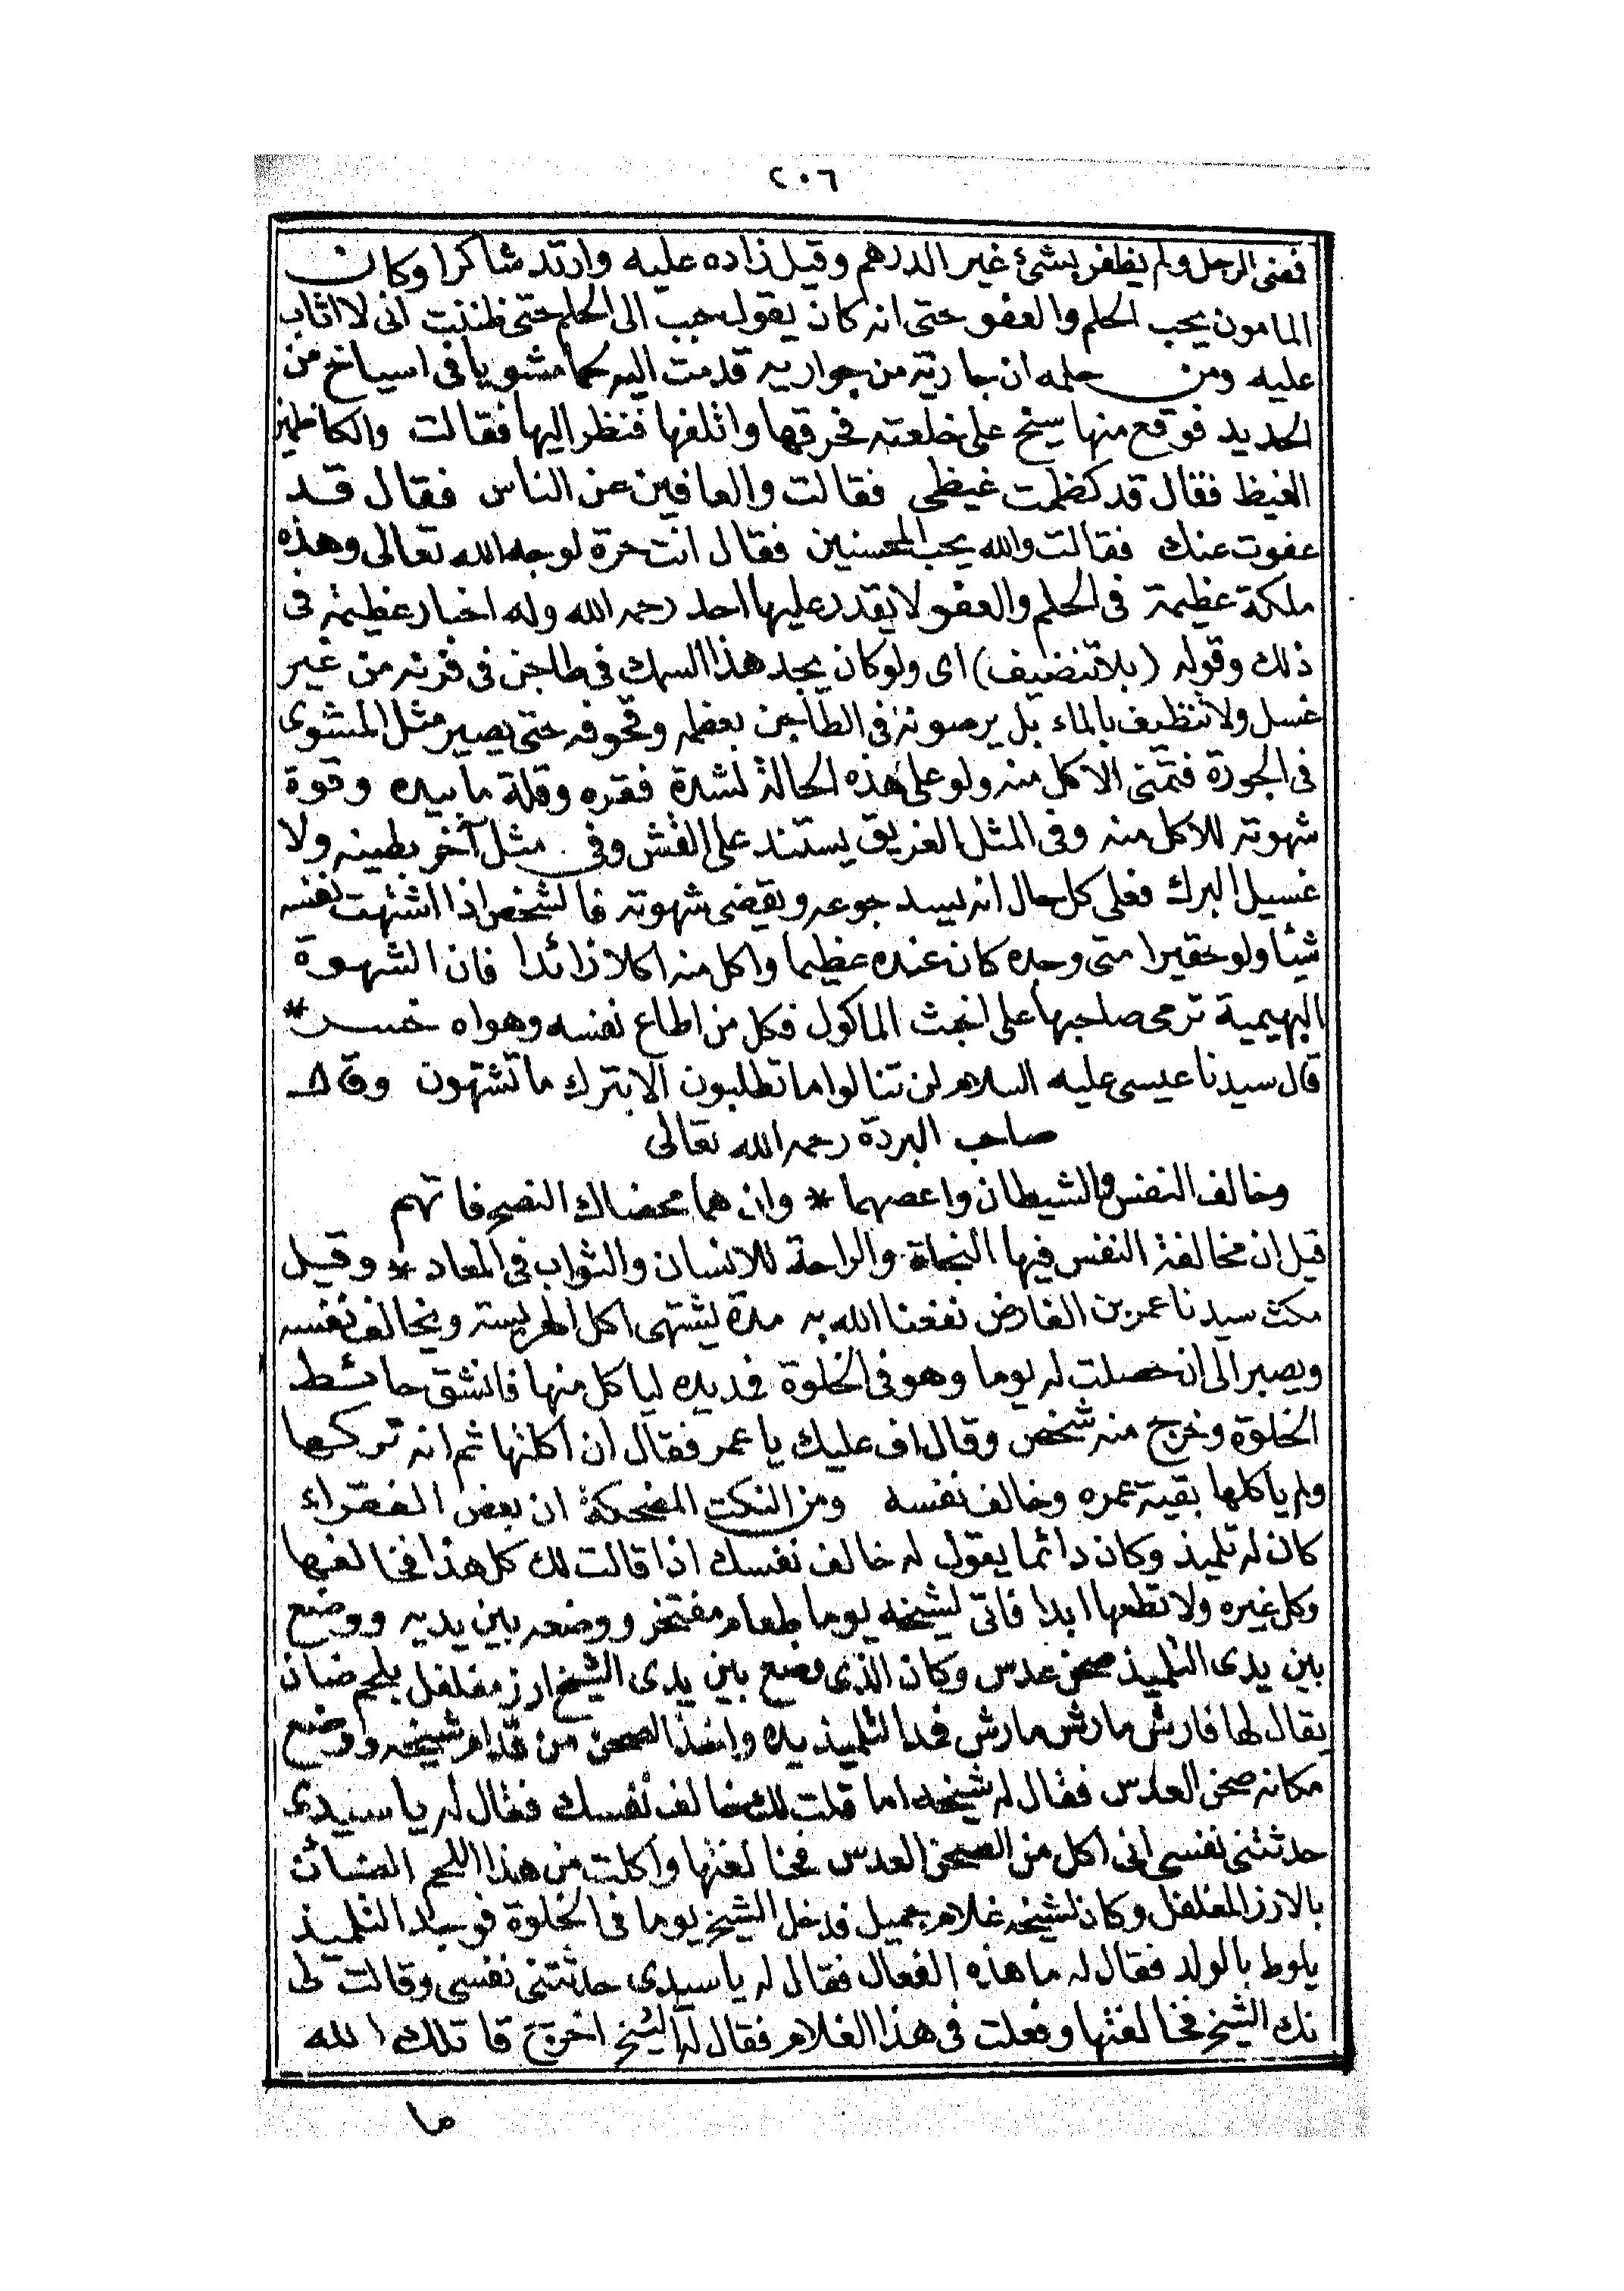 ٢٠٦
فمضى الرجل ولم يظفر بشئ غير الدرهم وقيل زاده عليه وارتد شاكرا وكان
المامون يحب الحلم والعفو حتى انه كان يقول حبب الى الحلم حتى ظننت انى لا اثاب
عليه ومن حلمه ان جارية من جواريه قدمت اليه لحما مشويا فى اسياخ من
الحديد فوقع منها سيخ على خلعته فحرقها واتلفها فنظر اليها فقالت والكاظمين
الغيظ فقال قد كظمت غيظى فقالت والعافين عن الناس فقال قد
عفوت عنك فقالت والله يحب المحسنين فقال انت حرة لوجه الله تعالى وهذه
ملكة عظيمة فى الحلم والعفو لا يقدر عليها احد رحمه الله وله اخبار عظيمة فى
ذلك وقوله (بلا تنضيف) اى ولو كان يجد هذا السمك فى طاجن فى فرنه من غير
غسل ولا تنظيف بالماء بل يرصونه فى الطاجن بعظمه وقحوفه حتى يصير مثل المشوى
فى الجورة فتمنى الاكل منه ولو على هذه الحالة لشدة فقره وقلة ما بيده وقوة
شهوته للاكل منه وفى المثل الغريق يستند على القش وفى مثل آخر بطينه ولا
غسيل البرك فعلى كل حال انه يسد جوعه ويقضى شهوته فالشخص اذا اشتهت نفسه
شيئا ولو حقيرا متى وجده كان عنده عظيما واكل منه اكلا زائدا فان الشهوة
البهيمية ترمى صاحبها على اخبث الماكول فكل من اطاع نفسه وهواه خسر *
قال سيدنا عيسى عليه السلام لن تنالوا ما تطلبون الا بترك ما تشتهون وقال
صاحب البردة رحمه الله تعالى
وخالف النفس والشيطان واعصهما * وان هما محضاك النصح فاتهم
قيل ان مخالفة النفس فيها النجاة والراحة للانسان والثواب فى المعاد * وقيل
مكث سيدنا عمر بن الفارض نفعنا الله به مدة يشتهى اكل الهريسة ويخالف نفسه
ويصبر الى ان حصلت له يوما وهو فى الخلوة فمد يده لياكل منها فانشق حائط
الخلوة وخرج منه شخص وقال اف عليك يا عمر فقال ان اكلتها ثم انه تركها
ولم ياكلها بقية عمره وخالف نفسه ومن النكت المضحكة ان بعض الفقراء
كان له تلميذ وكان دائما يقول له خالف نفسك اذا قالت لك كل هذا فخالفها
وكل غيره ولا تطعها ابدا فاتى لشيخه يوما طعام مفتخر ووضعه بين يديه ووضع
بين يدى التلميذ صحن عدس وكان الذى وضع بين يدى الشيخ ارز مفلفل بلحم ضان
يقال لها فارش مارش مارش فمد التلميذ يده واخذ الصحن من قدام شيخه ووضع
مكانه صحن العدس فقال له شيخه اما قلت لك خالف نفسك فقال له يا سيدى
حدثتنى نفسى انى اكل من الصحن العدس فخالفتها واكلت من هذا اللحم الضان
بالارز المفلفل وكان لشيخه غلام جميل فدخل الشيخ يوما فى الخلوة فوجد التلميذ
يلوط بالولد فقال له ما هذه الفعال فقال له يا سيدى حدثتنى نفسى وقالت لى
نك الشيخ فخالفتها وفعلت فى هذا الغلام فقال له الشيخ اخرج قاتلك الله
ما